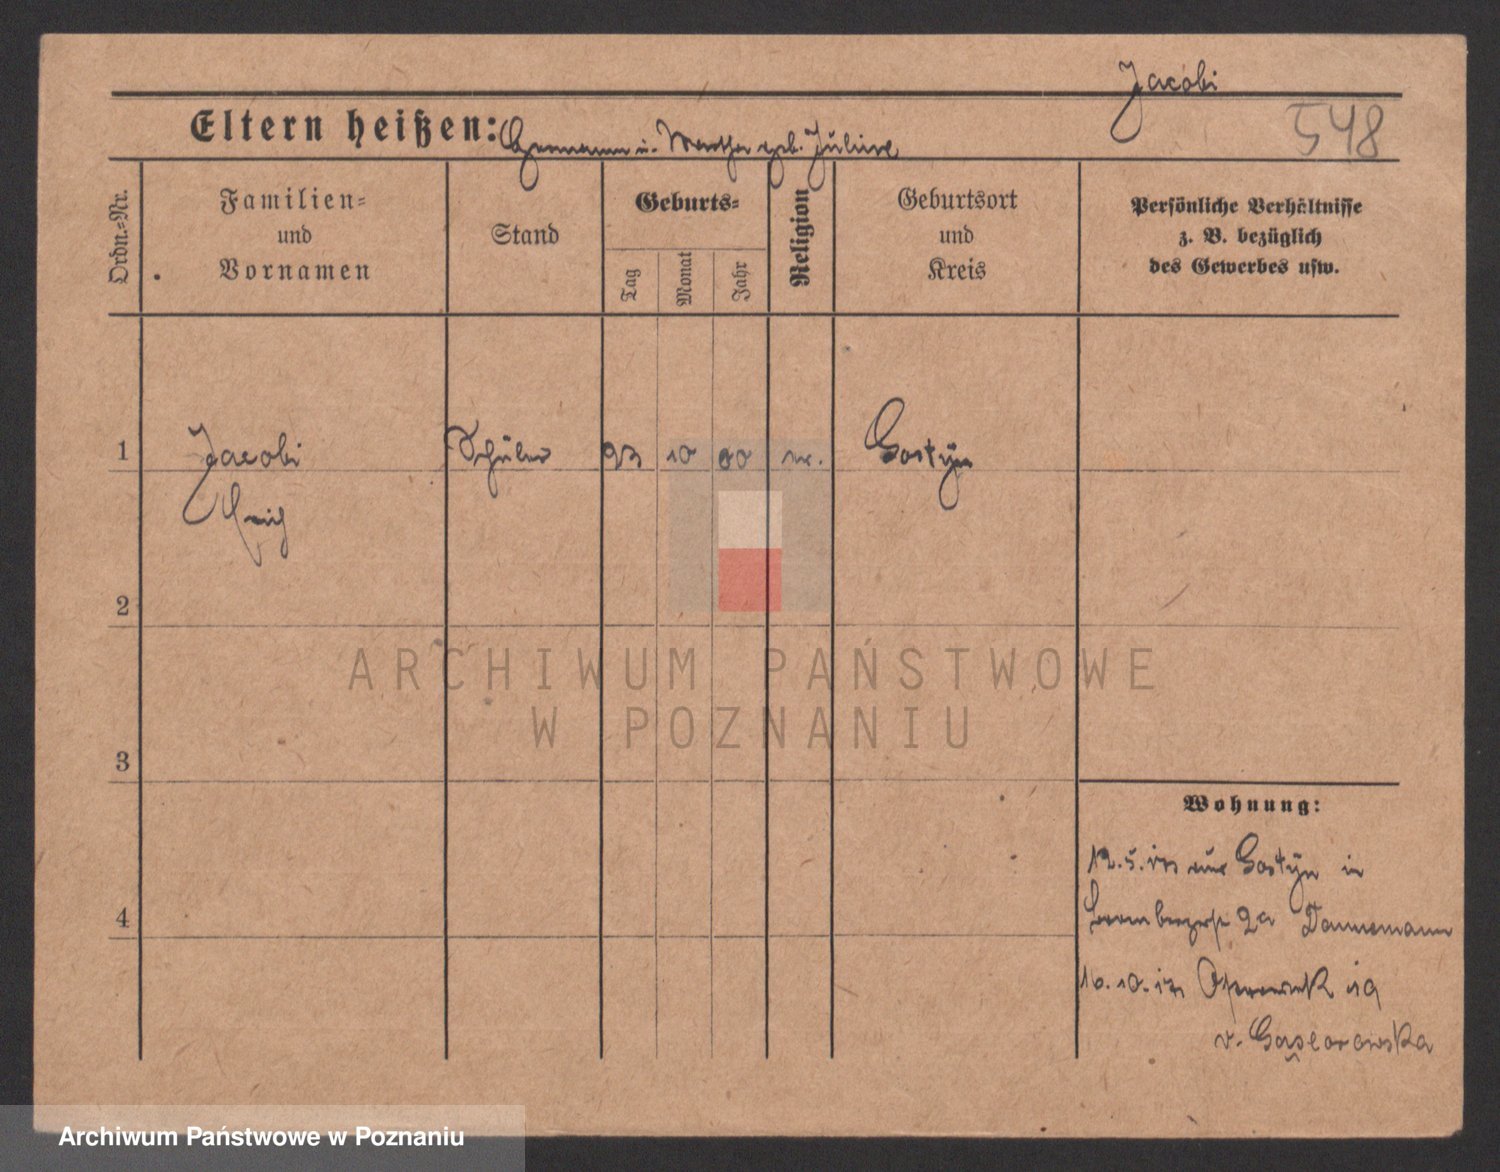 Jacobi
548
Eltern heißen: Hermann u. Martha geb.
Ordn.=Nr.
Familien=
und
Vornamen
Stand
Geburts=
Tag
Monat
Jahr
Religion
Geburtsort
und
Kreis
Persönliche Verhältnisse
z. B. bezüglich
des Gewerbes usw.
1
Jacobi Schüler 23 10 00 Gostyn
Erich
2
3
4
Wohnung:
12.5. Gostyn in
2a Dannemann
16.10. 19
v. Gąsiorowska
ARCHIWUM PAŃSTWOWE
W POZNANIU
Archiwum Państwowe w Poznaniu